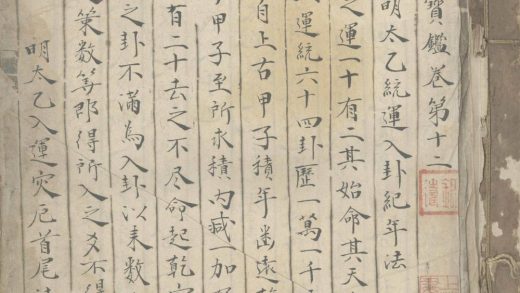 寶鑑卷第十二
明太乙統運入卦紀年法
之運一十有二其始命其天
運統六十四卦歷一萬一千
自上古甲子積年歲遠
甲子至所求積內減一加
有二十去之不尽命起乾
之卦不滿為入卦以来數
策數等郡得所入之爻不得
明太乙入運灾厄首尾